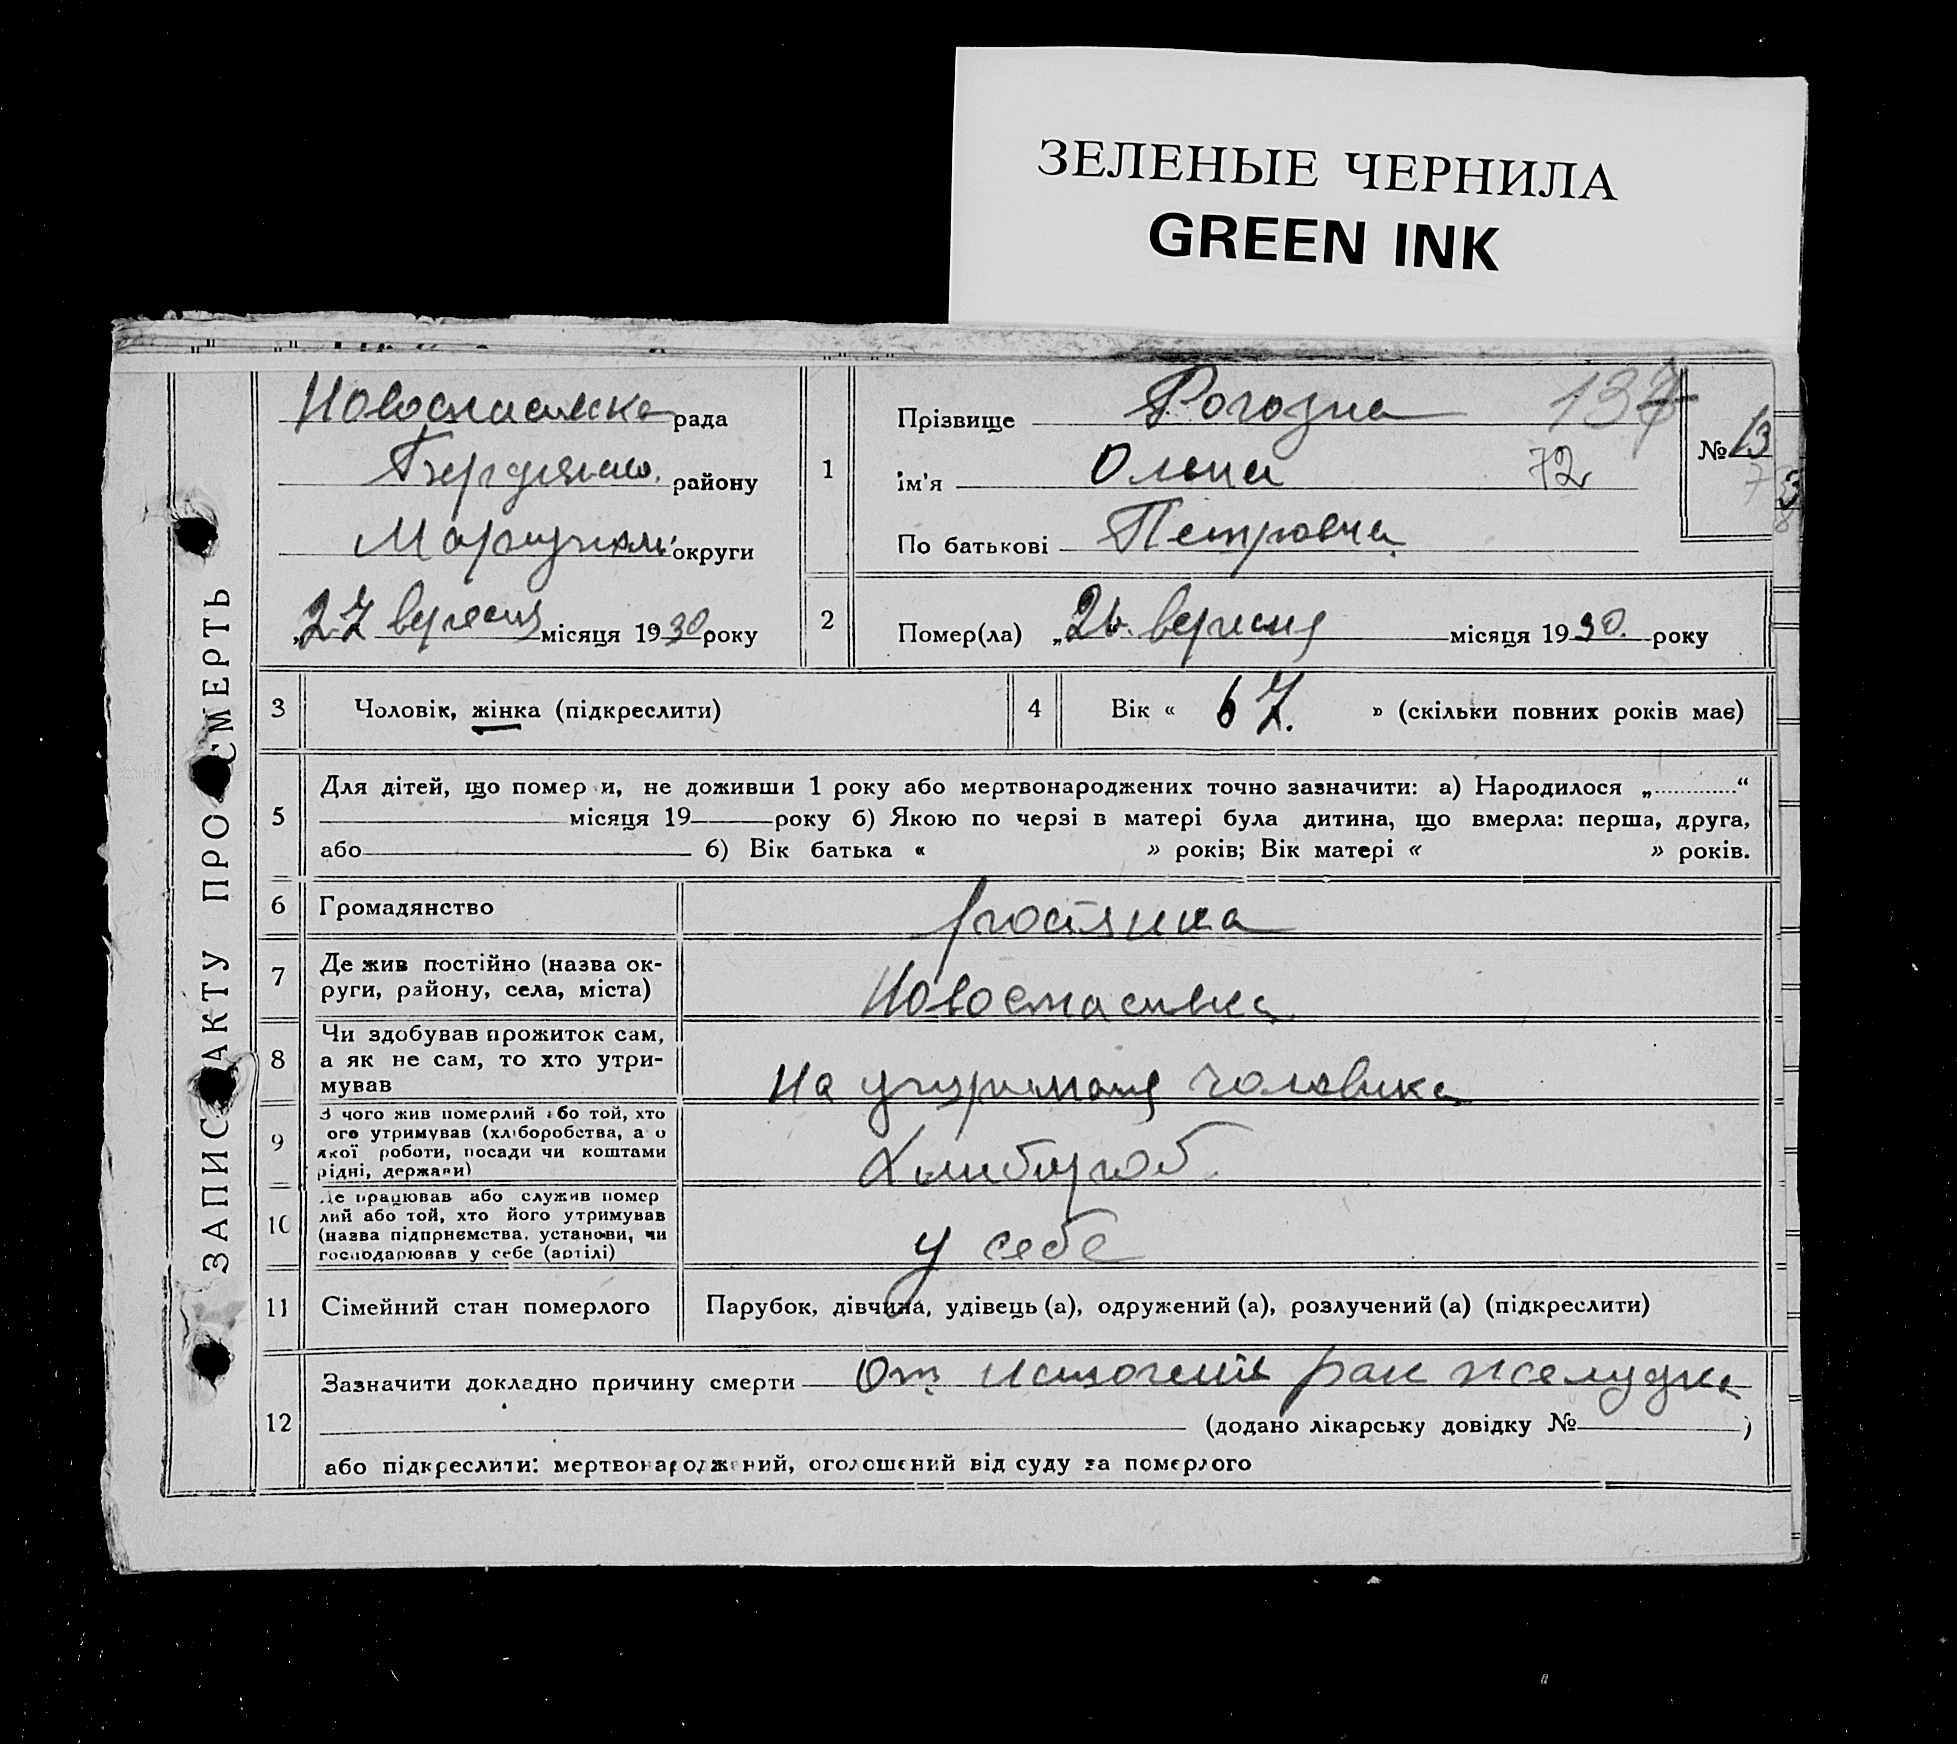 ЗЕЛЕНЫЕ ЧЕРНИЛА
GREEN INK
ЗАПИС АКТУ ПРО СМЕРТЬ
Новоспасівска рада
Бердянсь. району
Маріупіль округи
„27 вересня місяця 1930 року
1
Прізвище Рогозна 137
ім'я Ольга 72
По батькові Петровна
№ 13
7
2
Помер(ла) „26. вересня місяця 1930. року
3 Чоловік, жінка (підкреслити)
4 Вік « 67. » (скільки повних років має)
5
Для дітей, що помер и, не доживши 1 року або мертвонароджених точно зазначити: а) Народилося „ “
місяця 19 року б) Якою по черзі в матері була дитина, що вмерла: перша, друга,
або б) Вік батька « » років; Вік матері « » років.
6 Громадянство
7 Де жив постійно (назва ок-
руги, району, села, міста)
Новоспасивка
8 Чи здобував прожиток сам,
а як не сам, то хто утри-
мував
на утриманя чоловика
9 З чого жив померлий або той, хто
ого утримував (хліборобства, а о
якої роботи, посади чи коштами
рідні, держави)
Хлибороб.
10 Де працював або служив помер
лий або той, хто його утримував
(назва підприємства, установи, чи
господарював у себе (артілі)
у себе
11 Сімейний стан померлого
Парубок, дівчина, удівець (а), одружений (а), розлучений (а) (підкреслити)
12
Зазначити докладно причину смерти От источения рак желудка
(додано лікарську довідку № )
або підкреслити: мертвонароджений, оголошений від суду за померлого